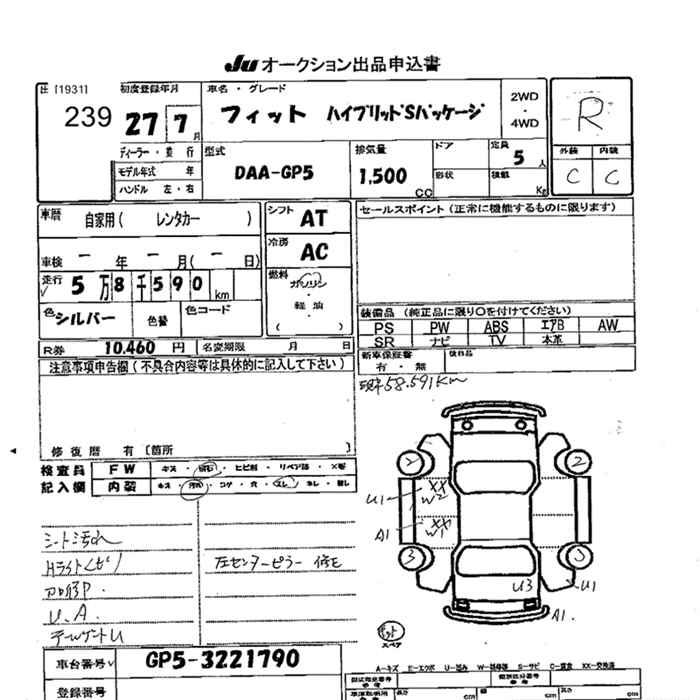 Ju オークション出品申込書
[1931]
239
初度登録年月
27 7月
車名・グレード
フィット ハイブリッドSパッケージ
2WD
・
4WD
R
外装 内装
C C
ディーラー・並行
モデル年式 年
ハンドル 左・右
型式
DAA-GP5
排気量
1,500 CC
ドア
形状
定員
5人
積載
Kg
車歴
自家用( レンタカー )
シフト AT
セールスポイント(正常に機能するものに限ります)
車検 ー年 ー月(ー日)
冷房 AC
走行 5万8千590km
燃料
ガソリン
・
軽油
( )
色 シルバー 色替 色コード
装備品(純正品に限り○を付けてください)
PS PW ABS エアB AW
SR ナビ TV 本革
R券 10.460円 名変期限 月 日
新車保証書 後日品
有・無
現車58.591Km
注意事項申告欄(不具合内容等は具体的に記入して下さい)
修復歴 有〔箇所 〕
検査員 FW キズ・ ・ヒビ割・リペア跡・×要
記入欄 内装 キズ・汚れ・コゲ・穴・スレ・ ・
2
U1 XX W2
A1 XX W1
3
シート汚れ
Hライトくもり
左センターピラー 修正
U.A
U3
U1
A1
スペア
車台番号 GP5-3221790
登録番号
A-キズ E-エクボ U-凹み S-サビ C-腐食 XX-交換済
cm cm cm